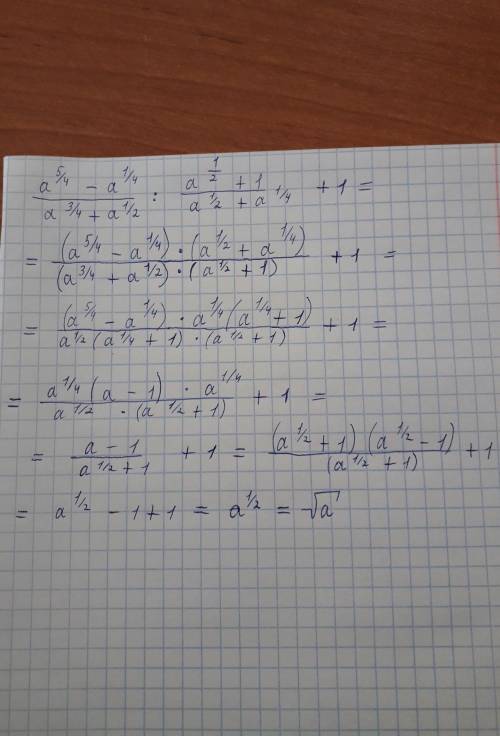 \frac{a^{5/4} - a^{1/4}}{a^{3/4} + a^{1/2}} : \frac{a^{\frac{1}{2}} + 1}{a^{1/2} + a^{1/4}} + 1 =
= \frac{(a^{5/4} - a^{1/4}) \cdot (a^{1/2} + a^{1/4})}{(a^{3/4} + a^{1/2}) \cdot (a^{1/2} + 1)} + 1 =
= \frac{(a^{5/4} - a^{1/4}) \cdot a^{1/4} (a^{1/4} + 1)}{a^{1/2} (a^{1/4} + 1) \cdot (a^{1/2} + 1)} + 1 =
= \frac{a^{1/4} (a - 1) \cdot a^{1/4}}{a^{1/2} \cdot (a^{1/2} + 1)} + 1 =
= \frac{a - 1}{a^{1/2} + 1} + 1 = \frac{(a^{1/2} + 1) (a^{1/2} - 1)}{(a^{1/2} + 1)} + 1
= a^{1/2} - 1 + 1 = a^{1/2} = \sqrt{a}